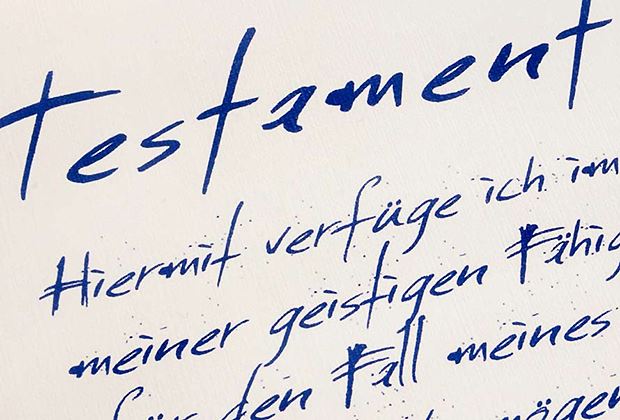 Testament
Hiermit verfüge ich im
meiner geistigen Fähig
für den Fall meines